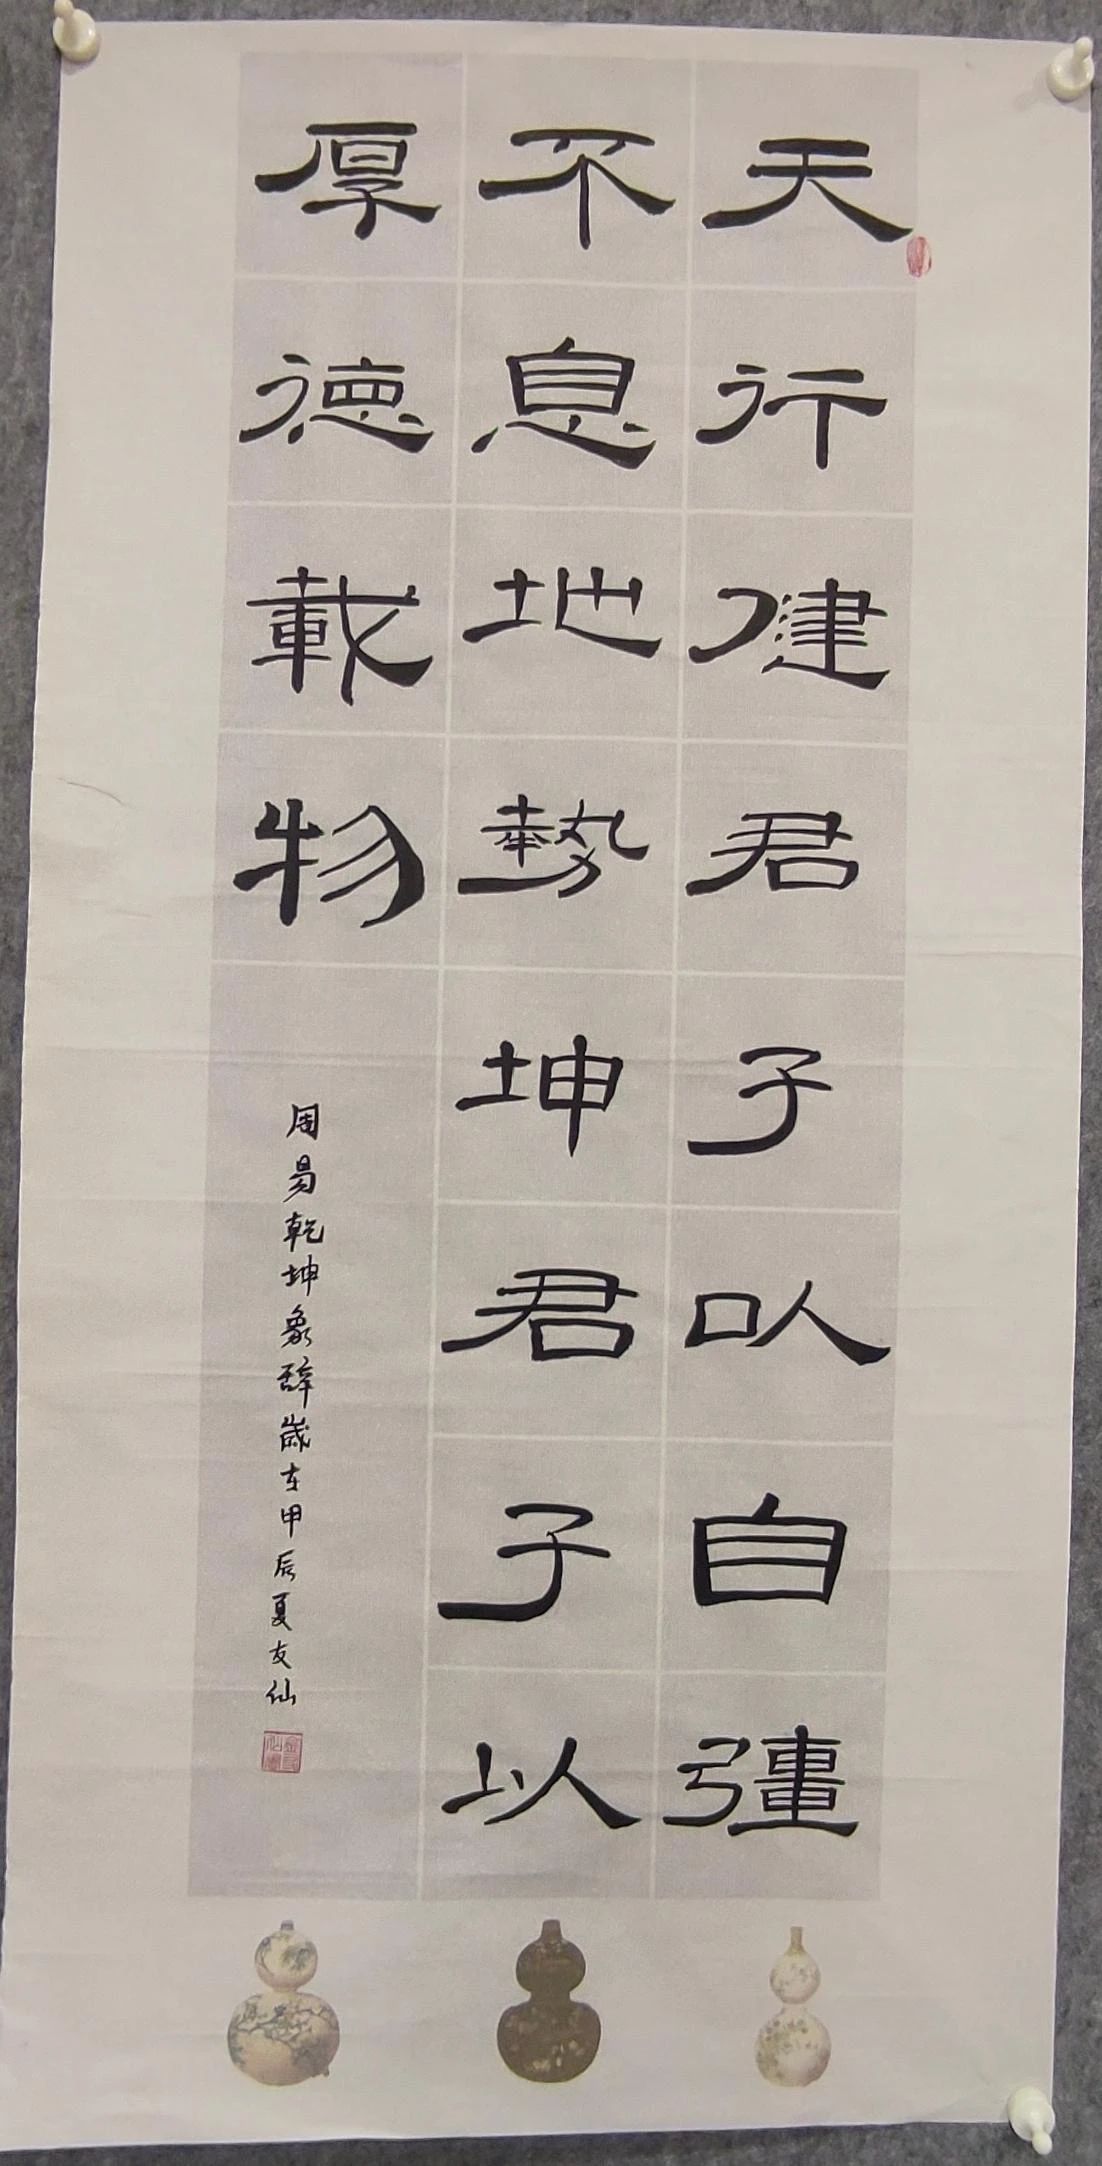 天行健君子以自彊
不息地勢坤君子以
厚德載物
周易乾坤象辭歲在甲辰夏友仙